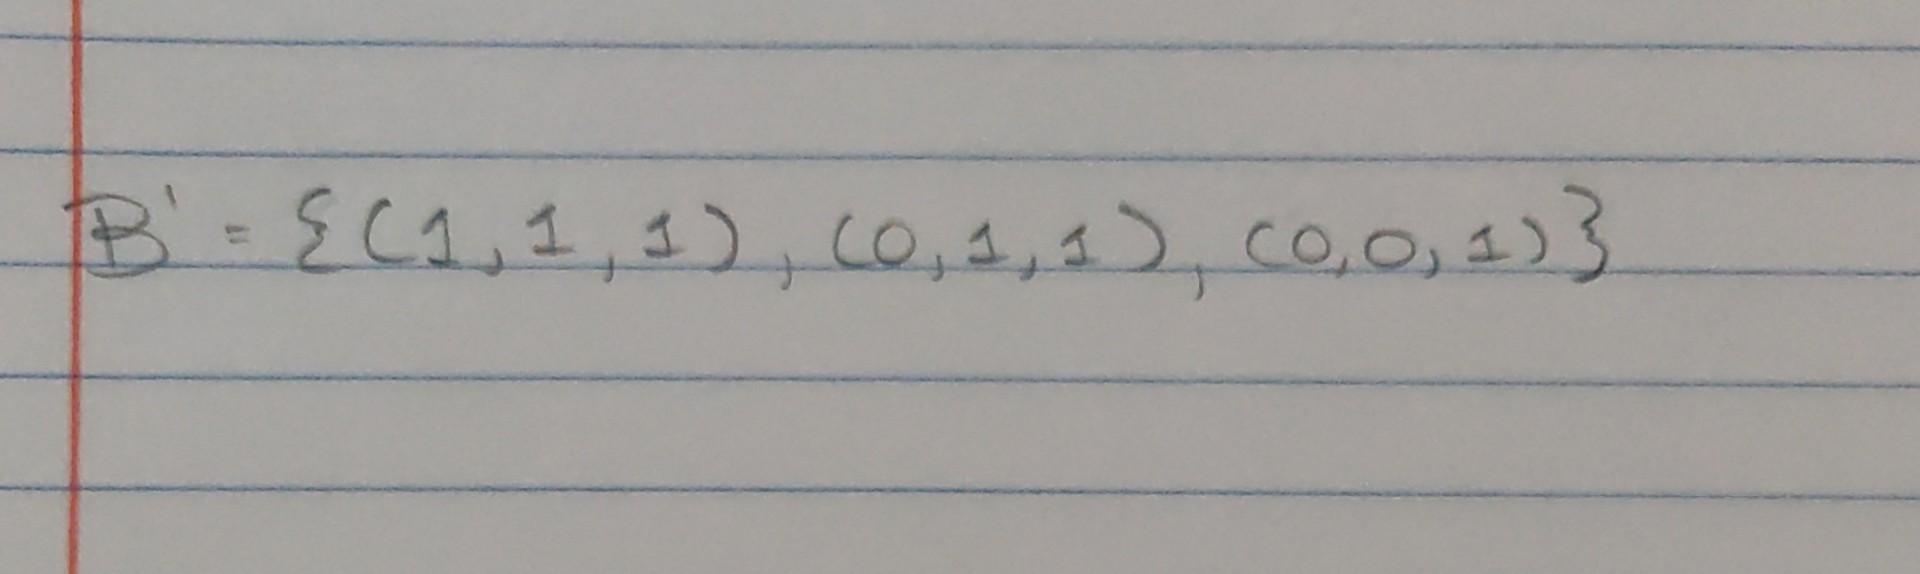 B' = {(1,1,1), (0,1,1), (0,0,1)}